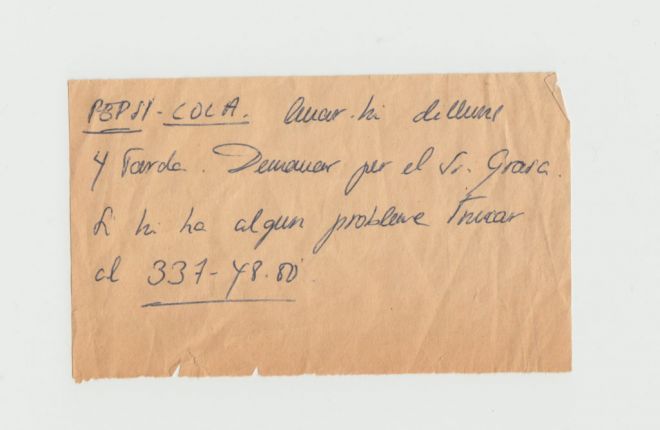 PEPSI-COLA. Anar-hi dilluns
4 Tarda. Demanar per el Sr. Grasa.
Si hi ha algun problema Trucar
al 337-48.80